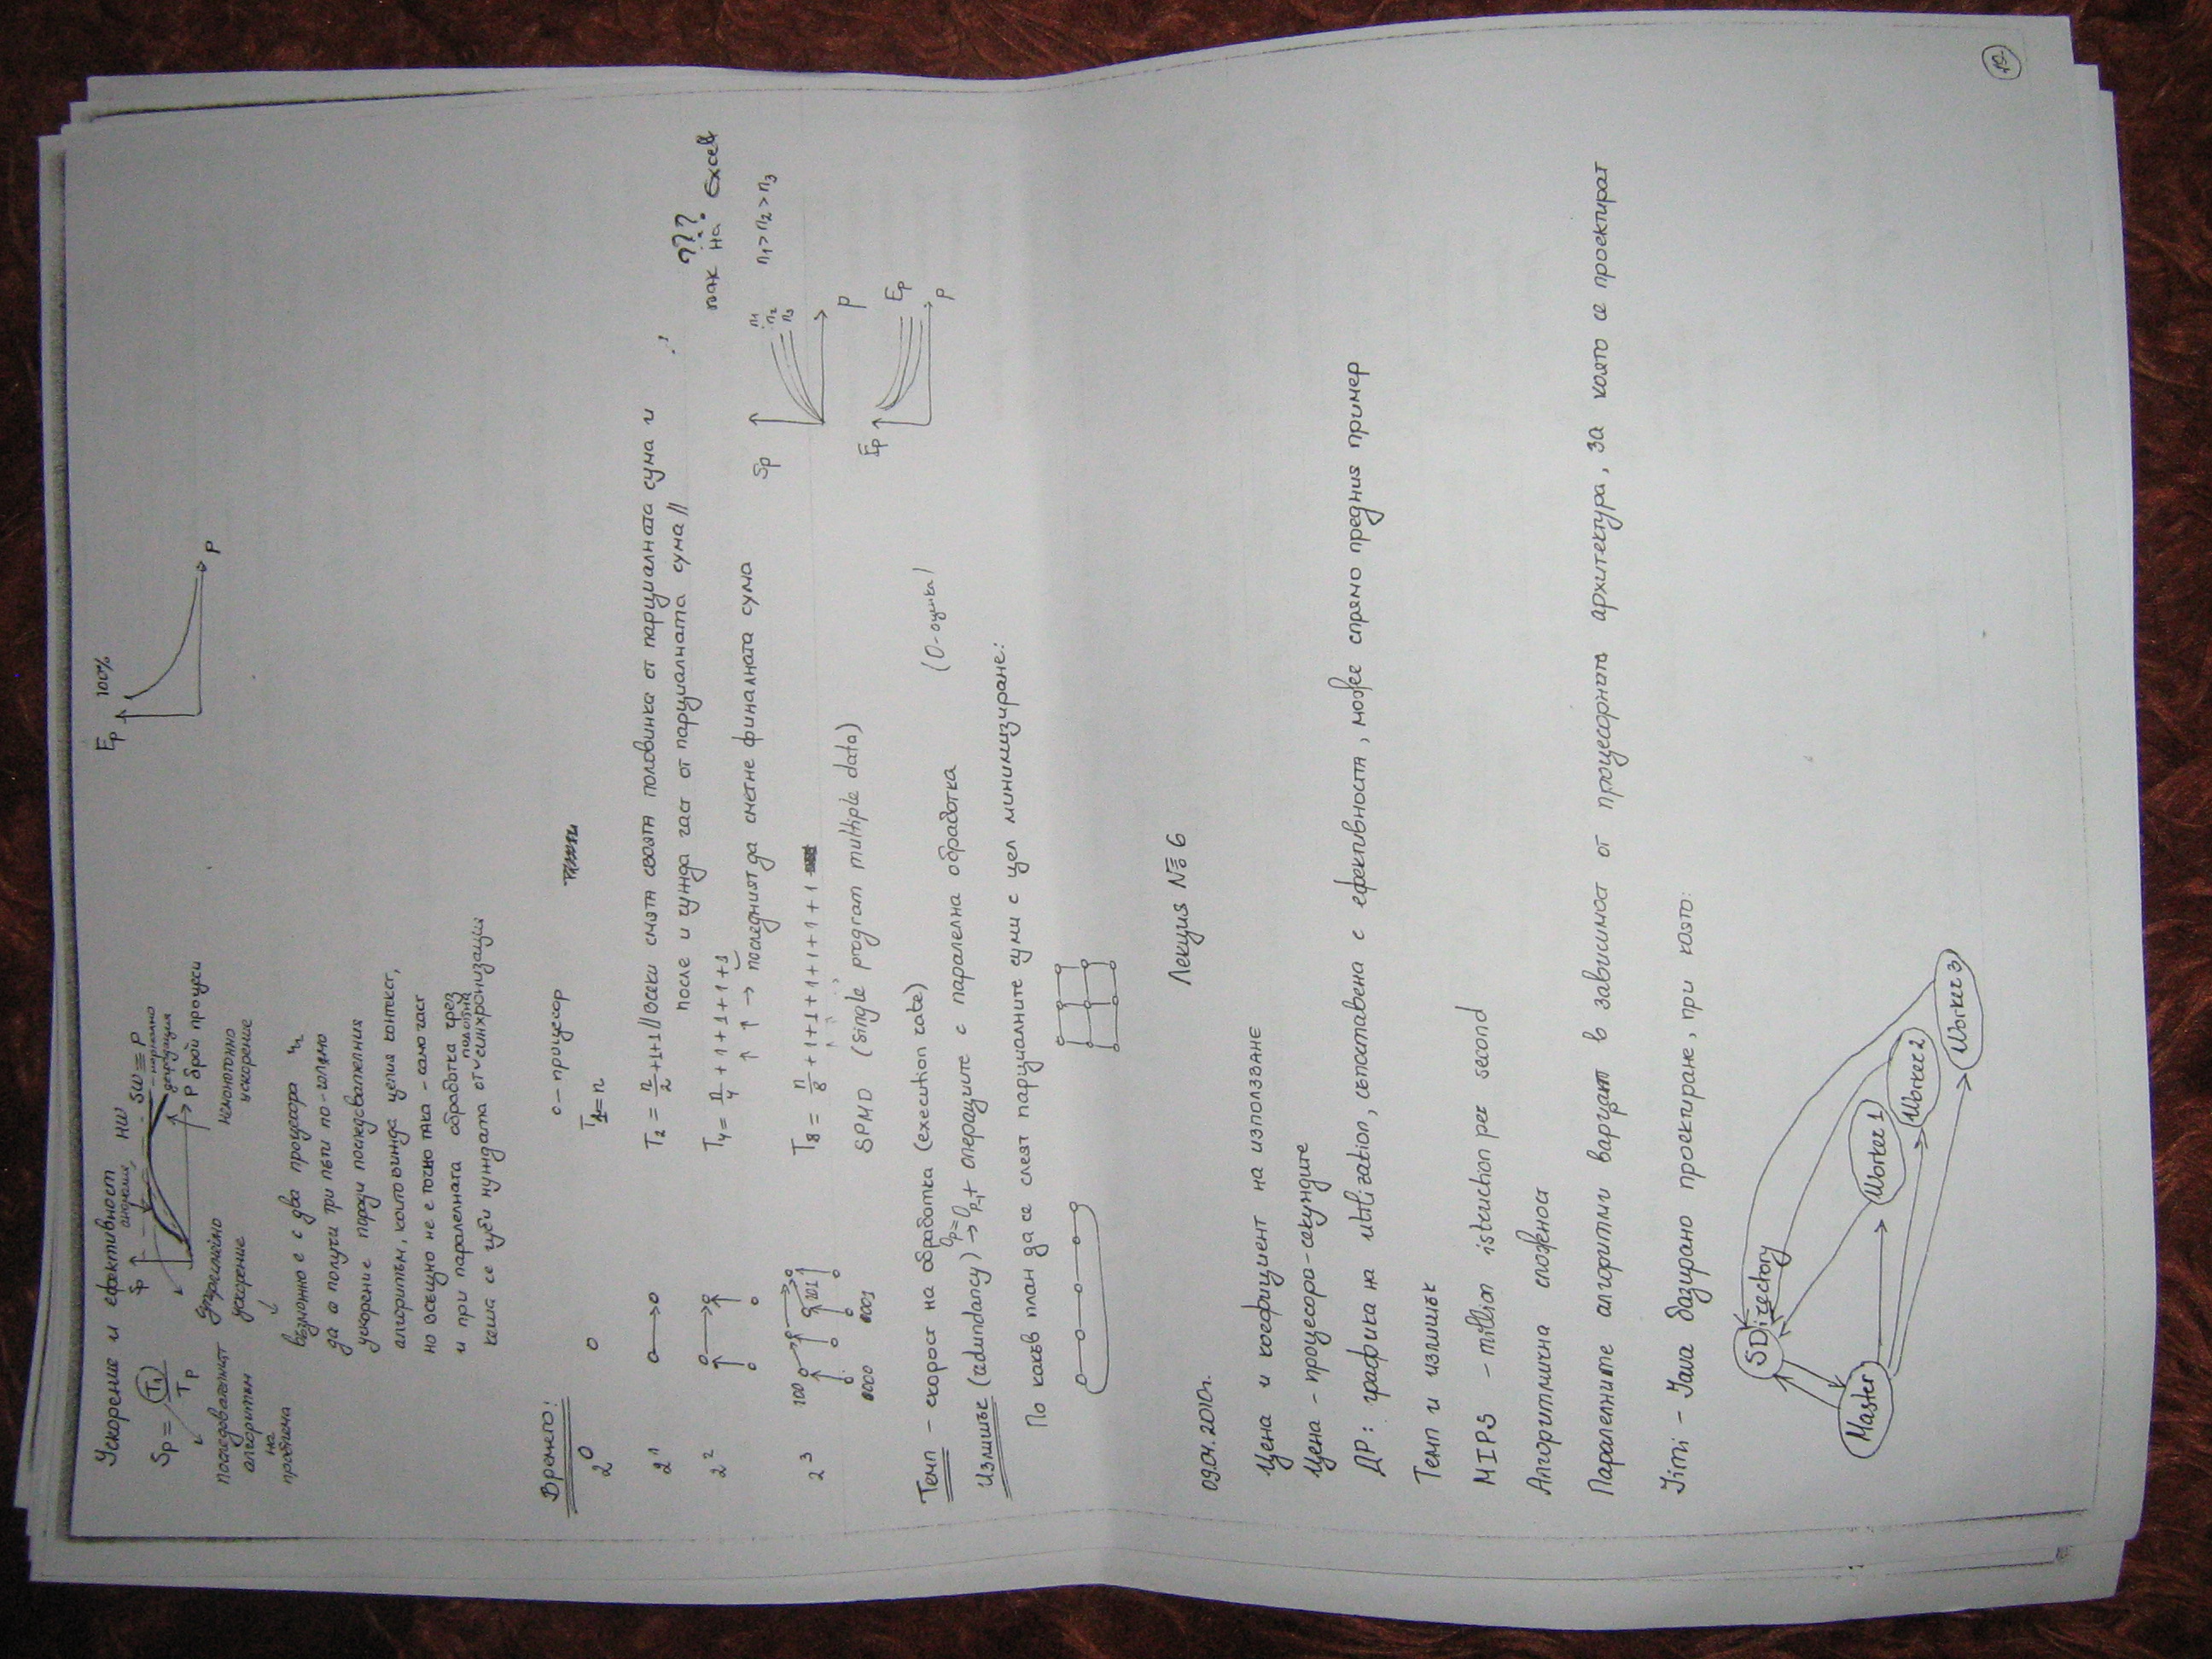 Ускорение и ефективност
Sp = T1 / Tp
Sp
аномалие
нш
Sw = P
нормално
деградация
P брой процеси
Ep 100%
P
последователният
алгоритъм
на
проблема
ускорение
немонотонно
ускорение
Възможно е с два процесора
да се получи три пъти по-голямо
ускорение поради последователния
алгоритъм, който винда целия контекст,
но всъщност не е точно така - само част
и при паралелната обработка чрез
кеша се губи нуждата от синхронизации
Времето!
o - процесор
2^0
T1 = n
2^1
T2 = n/2 +1+1 // всеки смята своята половинка от парциалната сума и
после и чужда част от парциалната сума //
???
пак на Excel
2^2
T4 = n/4 +1+1+1+1
→ последният да сметне финалната сума
2^3
100
101
0000
0001
T8 = n/8 +1+1+1+1+1+1
SPMD (single program multiple data)
Sp
n1
n2
n3
P
n1 > n2 > n3
Ep
Ep
P
Темп - скорост на обработка (execution rate)
Излишък (redundancy) → операциите с паралелна обработка (О-оценка)
По какъв план да се слеят парциалните суми с цел минимизиране:
Лекция № 6
09.04.2010г.
Цена и коефициент на използване
Цена - процесоро-секундите
ДР: графика на utilization, съпоставена с ефективността, може спрямо предния пример
Темп и излишък
MIPS - million istruction per second
Алгоритмична сложност
Паралелните алгоритми варират в зависимост от процесорната архитектура, за която се проектират
Jini - Java базирано проектиране, при което:
SDirectory
Master
Worker 1
Worker 2
Worker 3
19